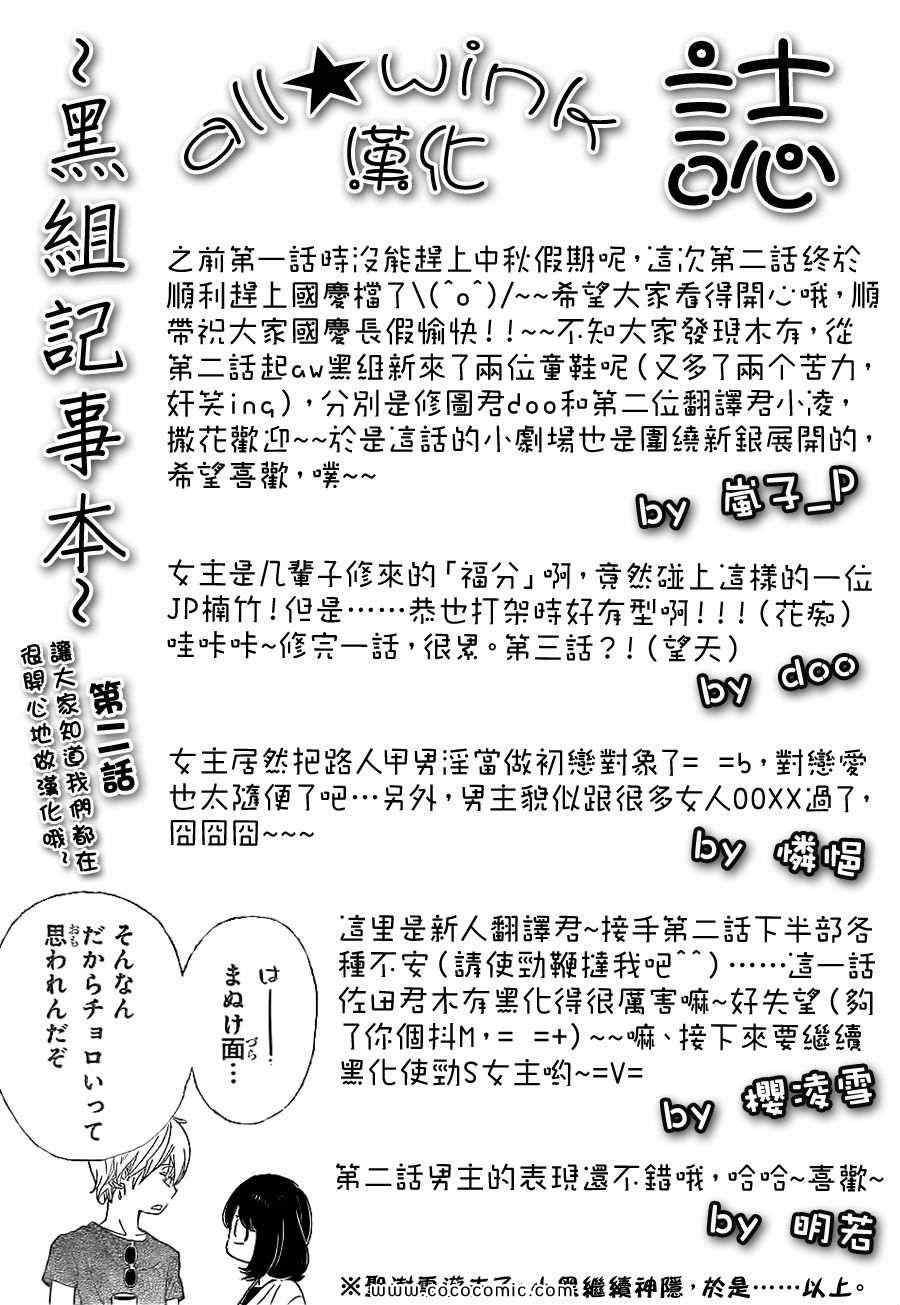 all★wink
漢化
誌
~黑組記事本~
第二話
讓大家知道我們都在
很開心地做漢化哦~
之前第一話時沒能趕上中秋假期呢，這次第二話終於
順利趕上國慶檔了\(^o^)/~~希望大家看得開心哦，順
帶祝大家國慶長假愉快!!~~不知大家發現木有，從
第二話起aw黑组新來了兩位童鞋呢(又多了兩个苦力，
奸笑ing)，分別是修圖君doo和第二位翻譯君小凌，
撒花歡迎~~於是這話的小劇場也是圍繞新銀展開的，
希望喜歡，噗~~
by 嵐子_P
女主是几輩子修來的「福分」啊，竟然碰上這樣的一位
JP楠竹!但是……恭也打架時好有型啊!!!(花痴)
哇咔咔~修完一話，很累。第三話?!(望天)
by doo
女主居然把路人甲男淫當做初戀對象了= =b，對戀愛
也太隨便了吧…另外，男主貌似跟很多女人OOXX過了，
囧囧囧~~~
by 憐悒
這里是新人翻譯君~接手第二話下半部各
種不安(請使勁鞭撻我吧^^)……這一話
佐田君木有黑化得很厲害嘛~好失望(夠
了你個抖M，= =+)~~嘛、接下來要繼續
黑化使勁S女主喲~=V=
by 櫻凌雪
第二話男主的表現還不錯哦，哈哈~喜歡~
by 明若
は——!
まぬけ面づら…
そんなん
だからチョロいって
思おもわれんだぞ
繼續神隱，於是……以上。
www.cococomic.com